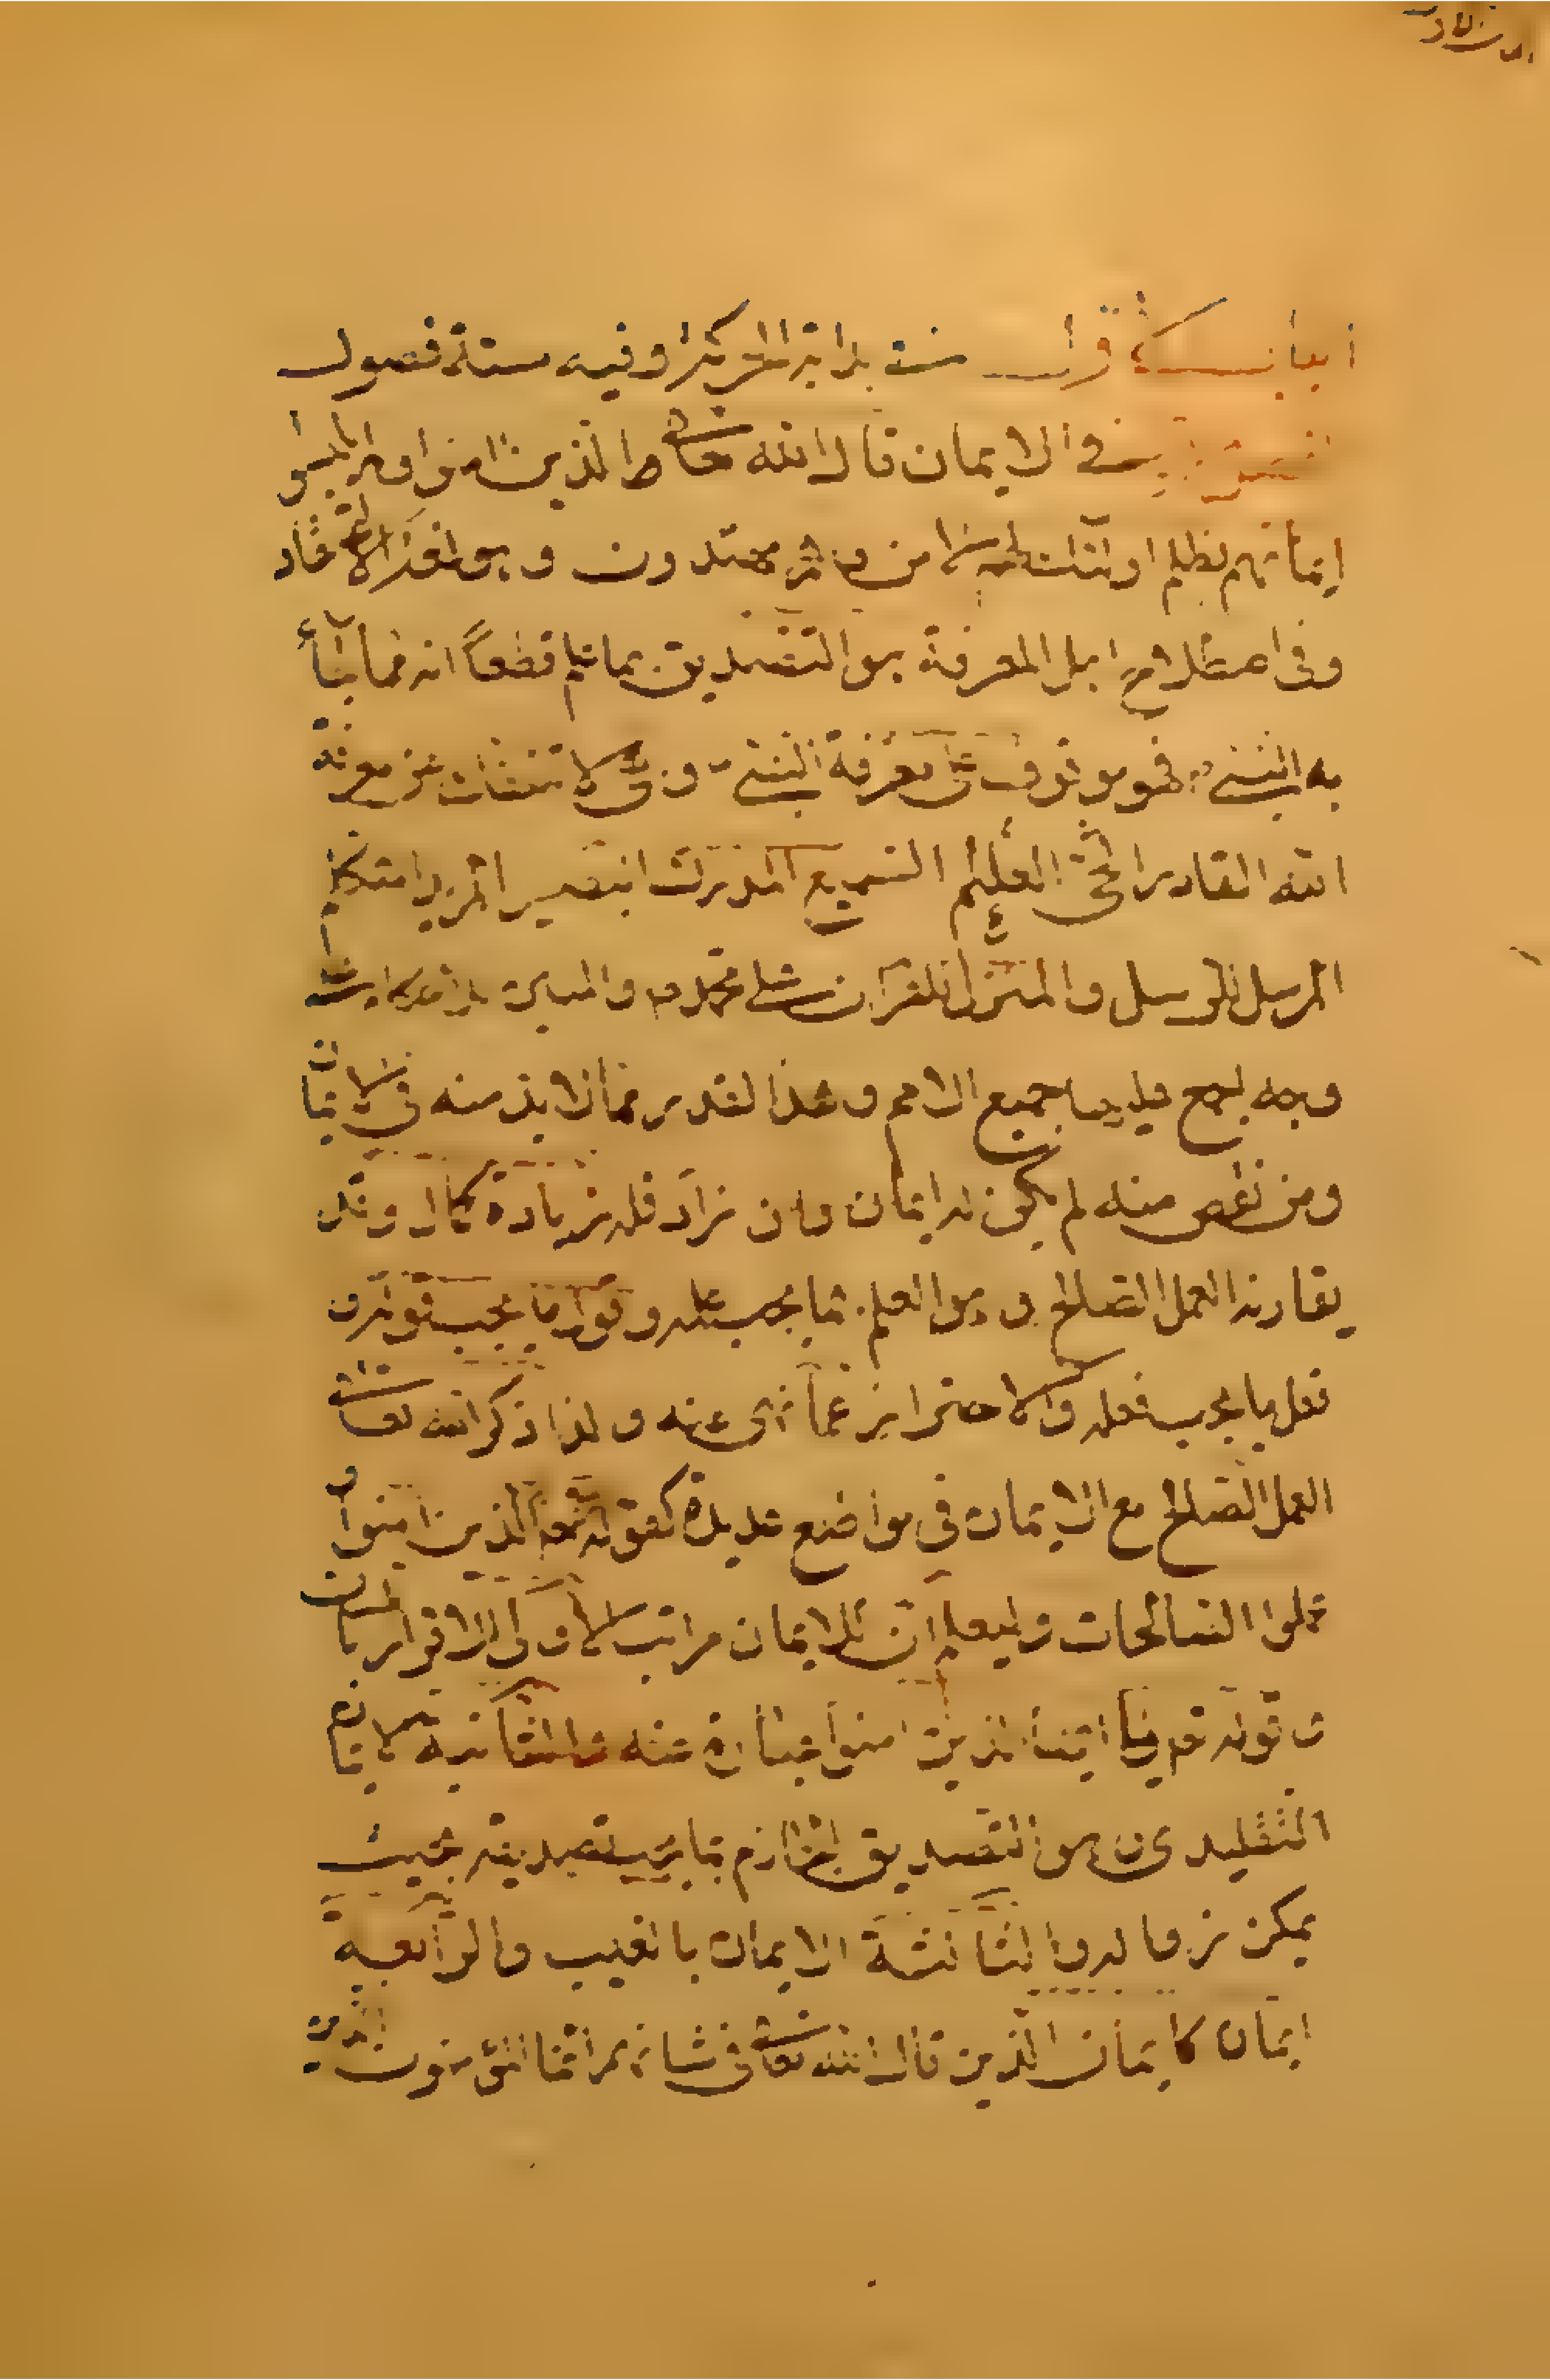 الباب الاول في بداية الحركة وفيه ستة فصول
الفصل في الايمان قال الله تعالى الذين امنوا ولم يلبسوا
ايمانهم بظلم اولئك لهم الامن وهم مهتدون وهو في اللغة الاعتقاد
وفي اصطلاح اهل المعرفة هو التصديق بما علم قطعاً انه مما جاء
به النبي فهو موقوف على معرفة النبي وهي لا تنفك عن معرفة
الله القادر الحي العليم السميع المدرك البصير المريد المتكلم
المرسل للرسل والمنزل للقرآن على محمد ص والمبين
وجه جميع الامم وهذا القدر مما لا بد منه في الايمان
ومن نقص منه لم يكن له ايمان وان زاد فله زيادة كمال وقد
يقارنه العمل الصالح وهو العلم بما يجب علمه وقول ما يجب قوله و
فعل ما يجب فعله والاحتراز عما نهى عنه ولذا ذكر الله تعالى
العمل الصالح مع الايمان في مواضع عديدة كقوله تعالى الذين امنوا و
عملوا الصالحات وليعلم ان للايمان مراتب الاولى الاقرار باللسان
و قوله تعالى يا ايها الذين امنوا عبارة عنه والثانية الايمان
التقليدي وهو التصديق الجازم بما يجب تصديقه بحيث
يمكن زواله والثالثة الايمان بالغيب والرابعة
ايمان كايمان الذين قال الله تعالى في شانهم انما المؤمنون الذين